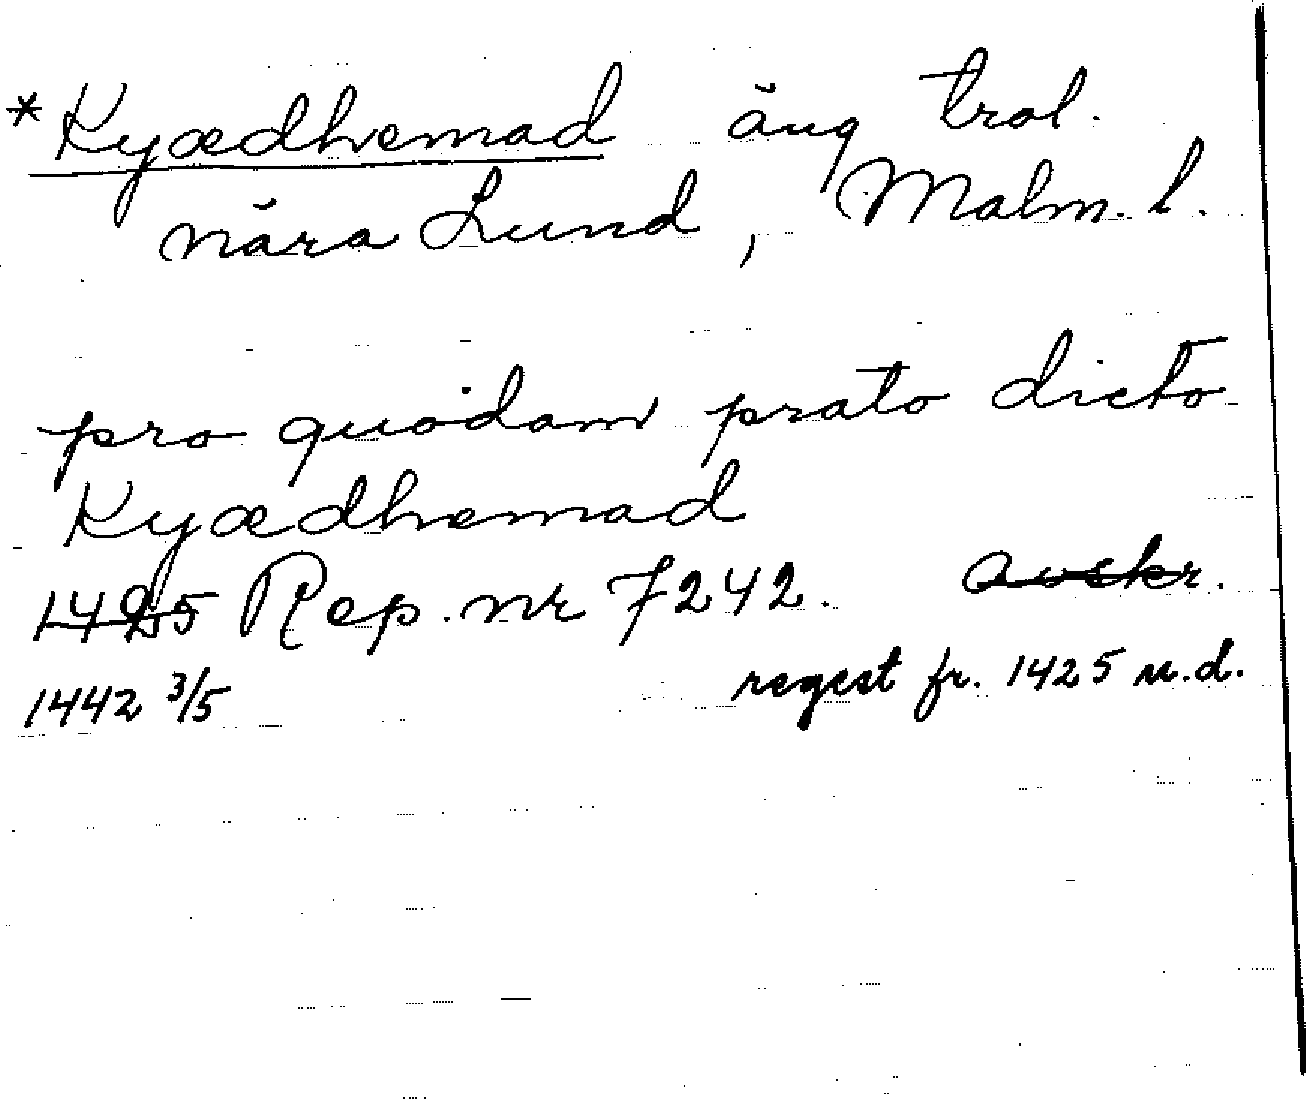 *Kyædhemad äng trol.
nära Lund, Malm. l.
pro quodam prato dicto
Kyædhemad
1425 Rep. nr 7242. avskr.
1442 3/5 regest fr. 1425 u.d.